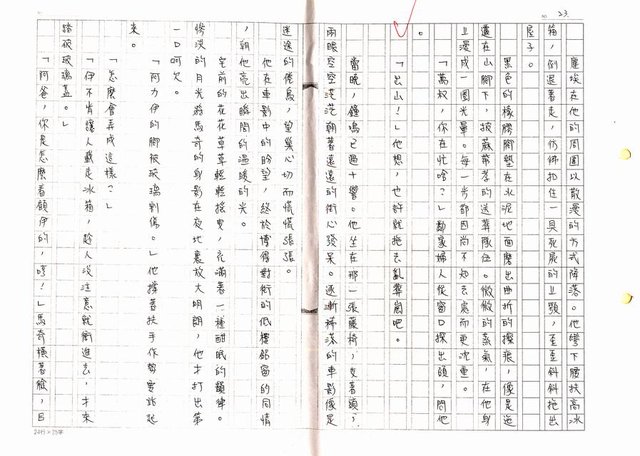 23
塵埃在他的周圍以散漫的方式降落。他彎下腰扶高冰
箱，倒退著走，彷彿扣住一具死屍的上顎，歪歪斜斜拖出
屋子。
黑色的橡膠腳墊在水泥地面磨出曲折的擦痕，像是迤
邐在山腳下，披蘇帶苦的送葬隊伍。微微的蒸氣，在他身
上漫成一圈光暈。每一步都因尚不知去處而更沈重。
「萬叔，你在忙啥？」勤家婦人從窗口探出頭，問他
。
「出山！」他想，也好就拖去亂葬崗吧。
當晚，鐘鳴已過十響。他坐在那一張藤椅，支著頭，
兩眼空空茫茫朝著遠遠的街心發呆。逐漸稀落的車影像是
迷途的倦鳥，望巢心切而慌慌張張。
他在車影中的盼望，終於博得對街的低樓部窗的同情
，朝他亮出瞬間的溫暖的光。
室前的花花草草輕輕接受，充滿著一種酣眠的韻律。
慘淡的月光並馬奇的身影在夜地裏放大明朗，他才打出第
一口呵欠。
「阿力伊的腳被玻璃刺傷。」他撐著扶手作勢要站起
來。
「怎麼會弄成這樣？」
「伊不肯讓人載走冰箱，趁人沒注意就衝進去，才來
踏破玻璃蓋。」
「阿爸，你是怎麼看顧伊的，嗄！」馬奇橫著臉，目
24行×25字